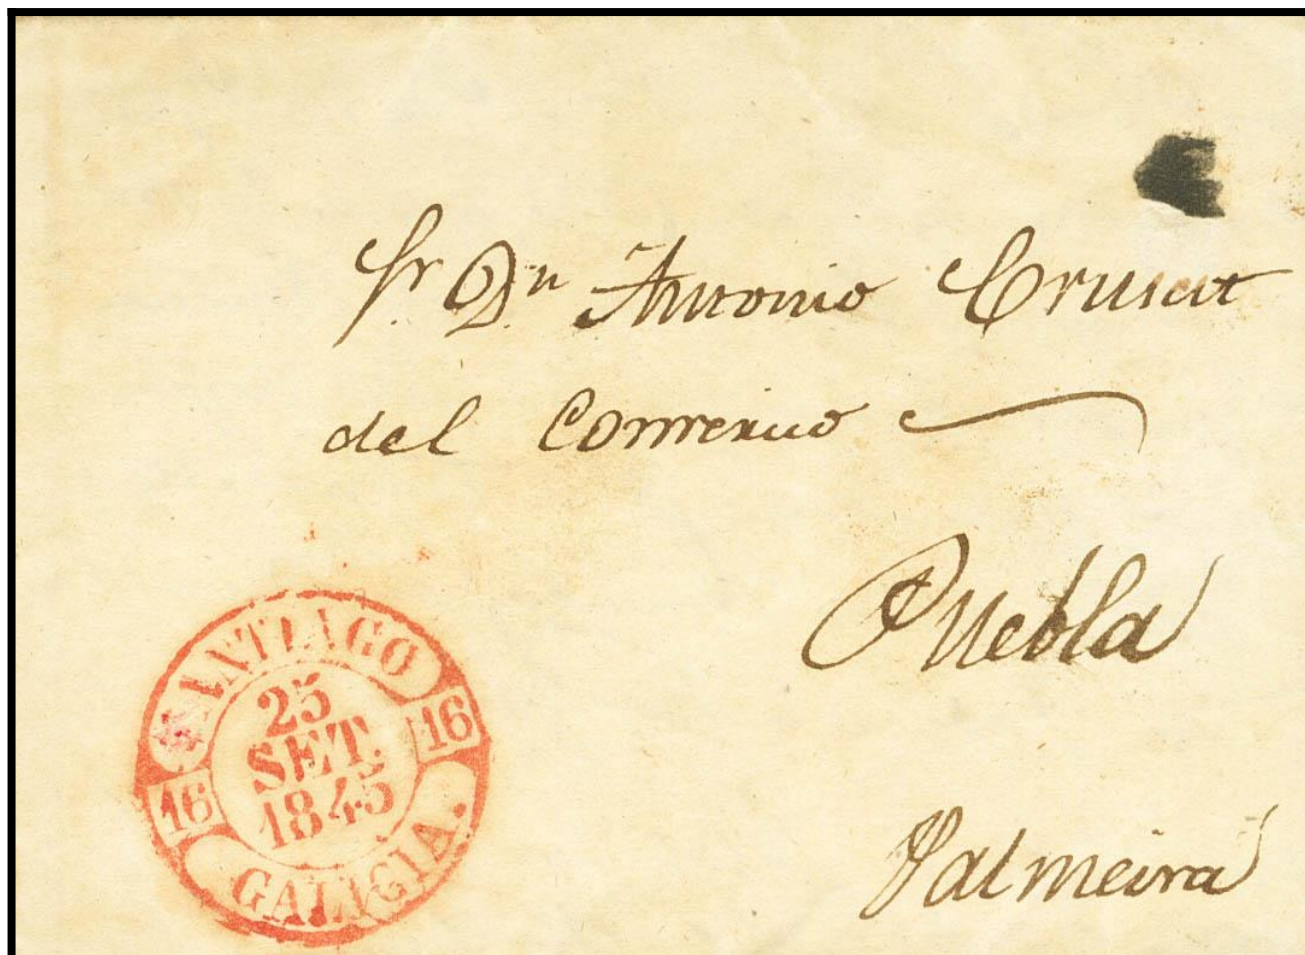 Sr. Dn. Antonio Cruset
del Comercio
Puebla
Palmeira
SANTIAGO
25
SET.
1845
16
16
GALICIA.